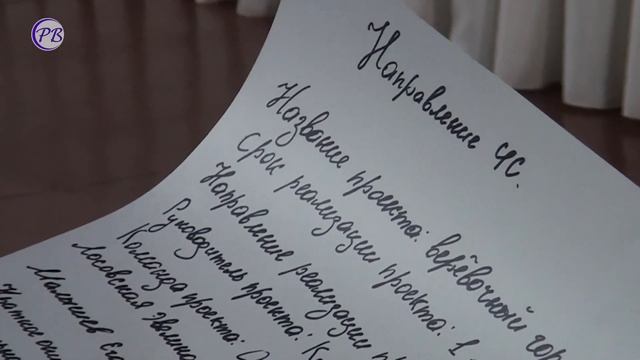 РВ
Направление ЧС.
Название проекта: верёвочный гор
Срок реализации проекта: 1
Направление реализации п
Руководитель проекта: К
Команда проекта:
Лосовская Эвелина
Малышев Ег